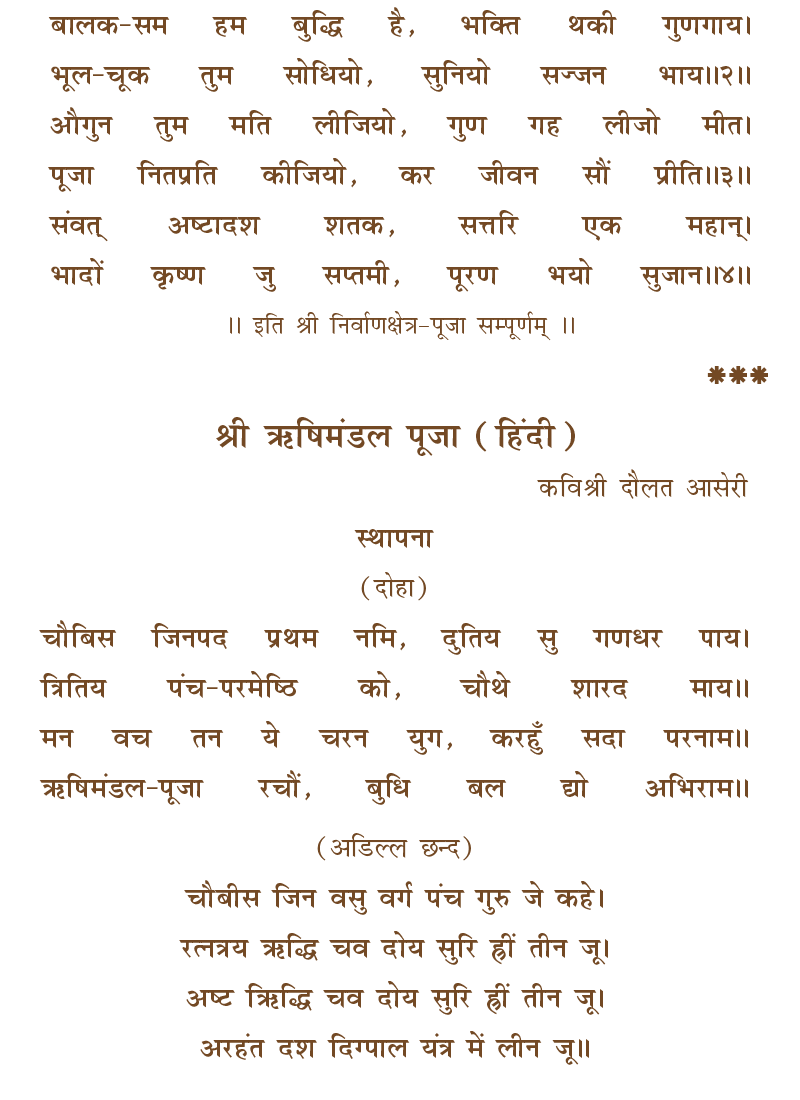 बालक-सम हम बुद्धि है, भक्ति थकी गुणगाय।
भूल-चूक तुम सोधियो, सुनियो सज्जन भाय॥२॥
औगुन तुम मति लीजियो, गुण गह लीजो मीत।
पूजा नितप्रति कीजियो, कर जीवन सौं प्रीति॥३॥
संवत् अष्टादश शतक, सत्तरि एक महान्।
भादों कृष्ण जु सप्तमी, पूरण भयो सुजान॥४॥
॥ इति श्री निर्वाणक्षेत्र-पूजा सम्पूर्णम् ॥
***
श्री ऋषिमंडल पूजा (हिंदी)
कविश्री दौलत आसेरी
स्थापना
(दोहा)
चौबिस जिनपद प्रथम नमि, दुतिय सु गणधर पाय।
त्रितिय पंच-परमेष्ठि को, चौथे शारद माय॥
मन वच तन ये चरन युग, करहुँ सदा परनाम॥
ऋषिमंडल-पूजा रचौं, बुधि बल द्यो अभिराम॥
(अडिल्ल छन्द)
चौबीस जिन वसु वर्ग पंच गुरु जे कहे।
रत्नत्रय ऋद्धि चव दोय सुरि ह्रीं तीन जू।
अष्ट ऋिद्धि चव दोय सुरि ह्रीं तीन जू।
अरहंत दश दिग्पाल यंत्र में लीन जू॥